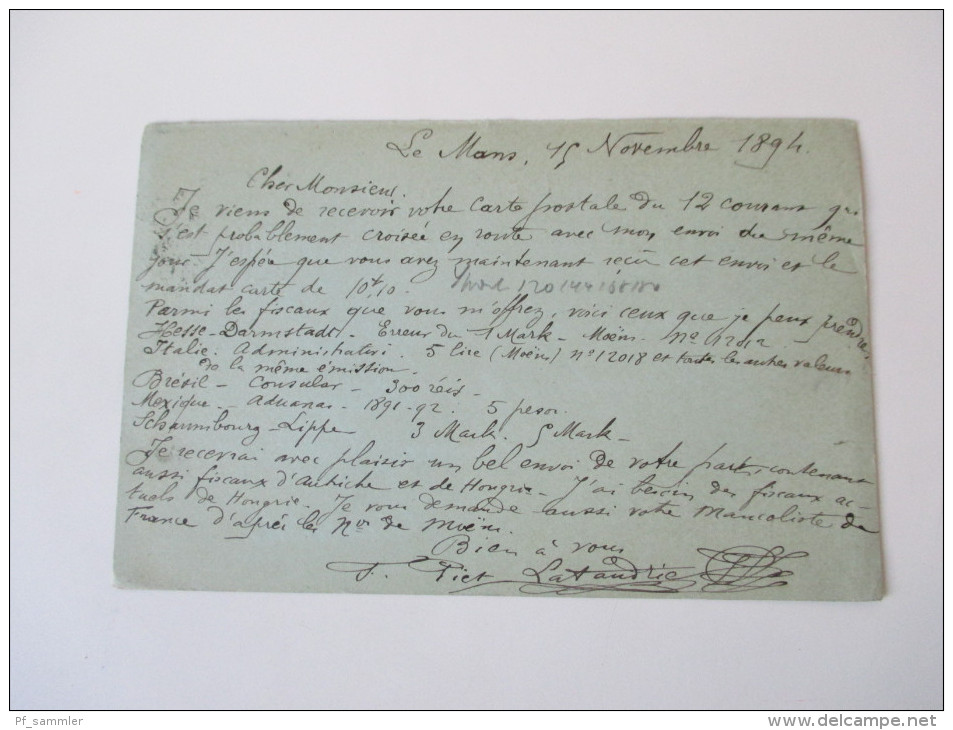 Le Mans, 15 Novembre 1894.
Cher Monsieur.
Je viens de recevoir votre carte postale du 12 courant qui
s'est probablement croisée en route avec mon envoi du même
jour. J'espère que vous avez maintenant reçu cet envoi et le
mandat carte de 10f,10.
Parmi les fiscaux que vous m'offrez, voici ceux que je peux prendre.
Hesse-Darmstadt - Erreur du 1 Mark - Moëns. no 12012.
Italie. Administratori. 5 lire (Moëns) no 12018 et toutes les autres valeurs
de la même émission.
Brésil - Consular - 300 réis -
Mexique - Aduanas - 1891-92. 5 pesos.
Schaumbourg-Lippe 3 Mark. 5 Mark -
Je recevrai avec plaisir un bel envoi de votre part, contenant
aussi fiscaux d'Autriche et de Hongrie - J'ai besoin des fiscaux ac-
tuels de Hongrie. Je vous demande aussi votre Mancoliste de
France d'après les Nos de Moëns.
Bien à vous
F. Piet Lataudrie
Pf_sammler
www.delcampe.net